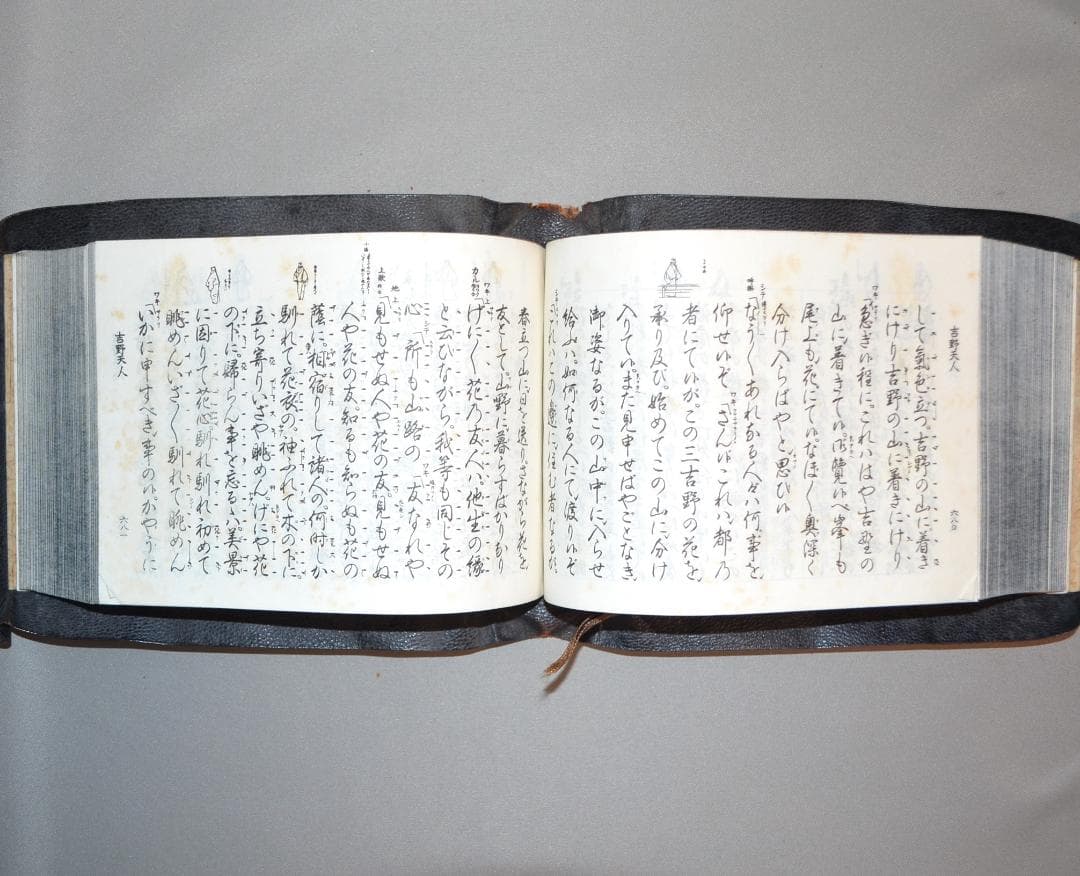 吉野天人
六八〇
して氣色立つ。吉野の山に着き
にけり吉野の山に着きにけり
ワキ「急ぎ候程に。これははや吉野の
山に着きて候。御覧候へ峯も
尾上も花にて候。なほ〱奥深く
分け入らばやと思ひ候
シテ
「なう〱あれなる人々は何事を
仰せ候ぞ ワキ「さん候これは都の
者にて候が。この三吉野の花を
承り及び。始めてこの山に分け
入りて候。また見申せばやごとなき
御姿なるが。この山中に入らせ
給ふは。如何なる人にて渡り候ぞ
シテ「これはこの邊に住む者なるが。
春立つ山に日を送り。さながら花を
友として。山野に暮らすばかりなり
ワキ
「げに〱花の友人は。他生の縁
と云ひながら。我等も同じその
心 シテ 所も山路の ワキ 友なれや
上歌
地上
「見もせぬ人や花の友。見もせぬ
人や花の友。知るも知らぬも花の
蔭に。相宿りして諸人の。何時しか
馴れて花衣の。袖ふれて木の下に
立ち寄りいざや眺めん。げにや花
の下に。歸らん事を忘るゝは。美景
に因りて花心馴れ馴れ初めて
眺めん。いざ〱馴れて眺めん
ワキ
「いかに申すべき事の候。かやうに
吉野天人
六八一